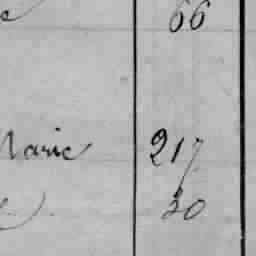 66
Marie 217
30